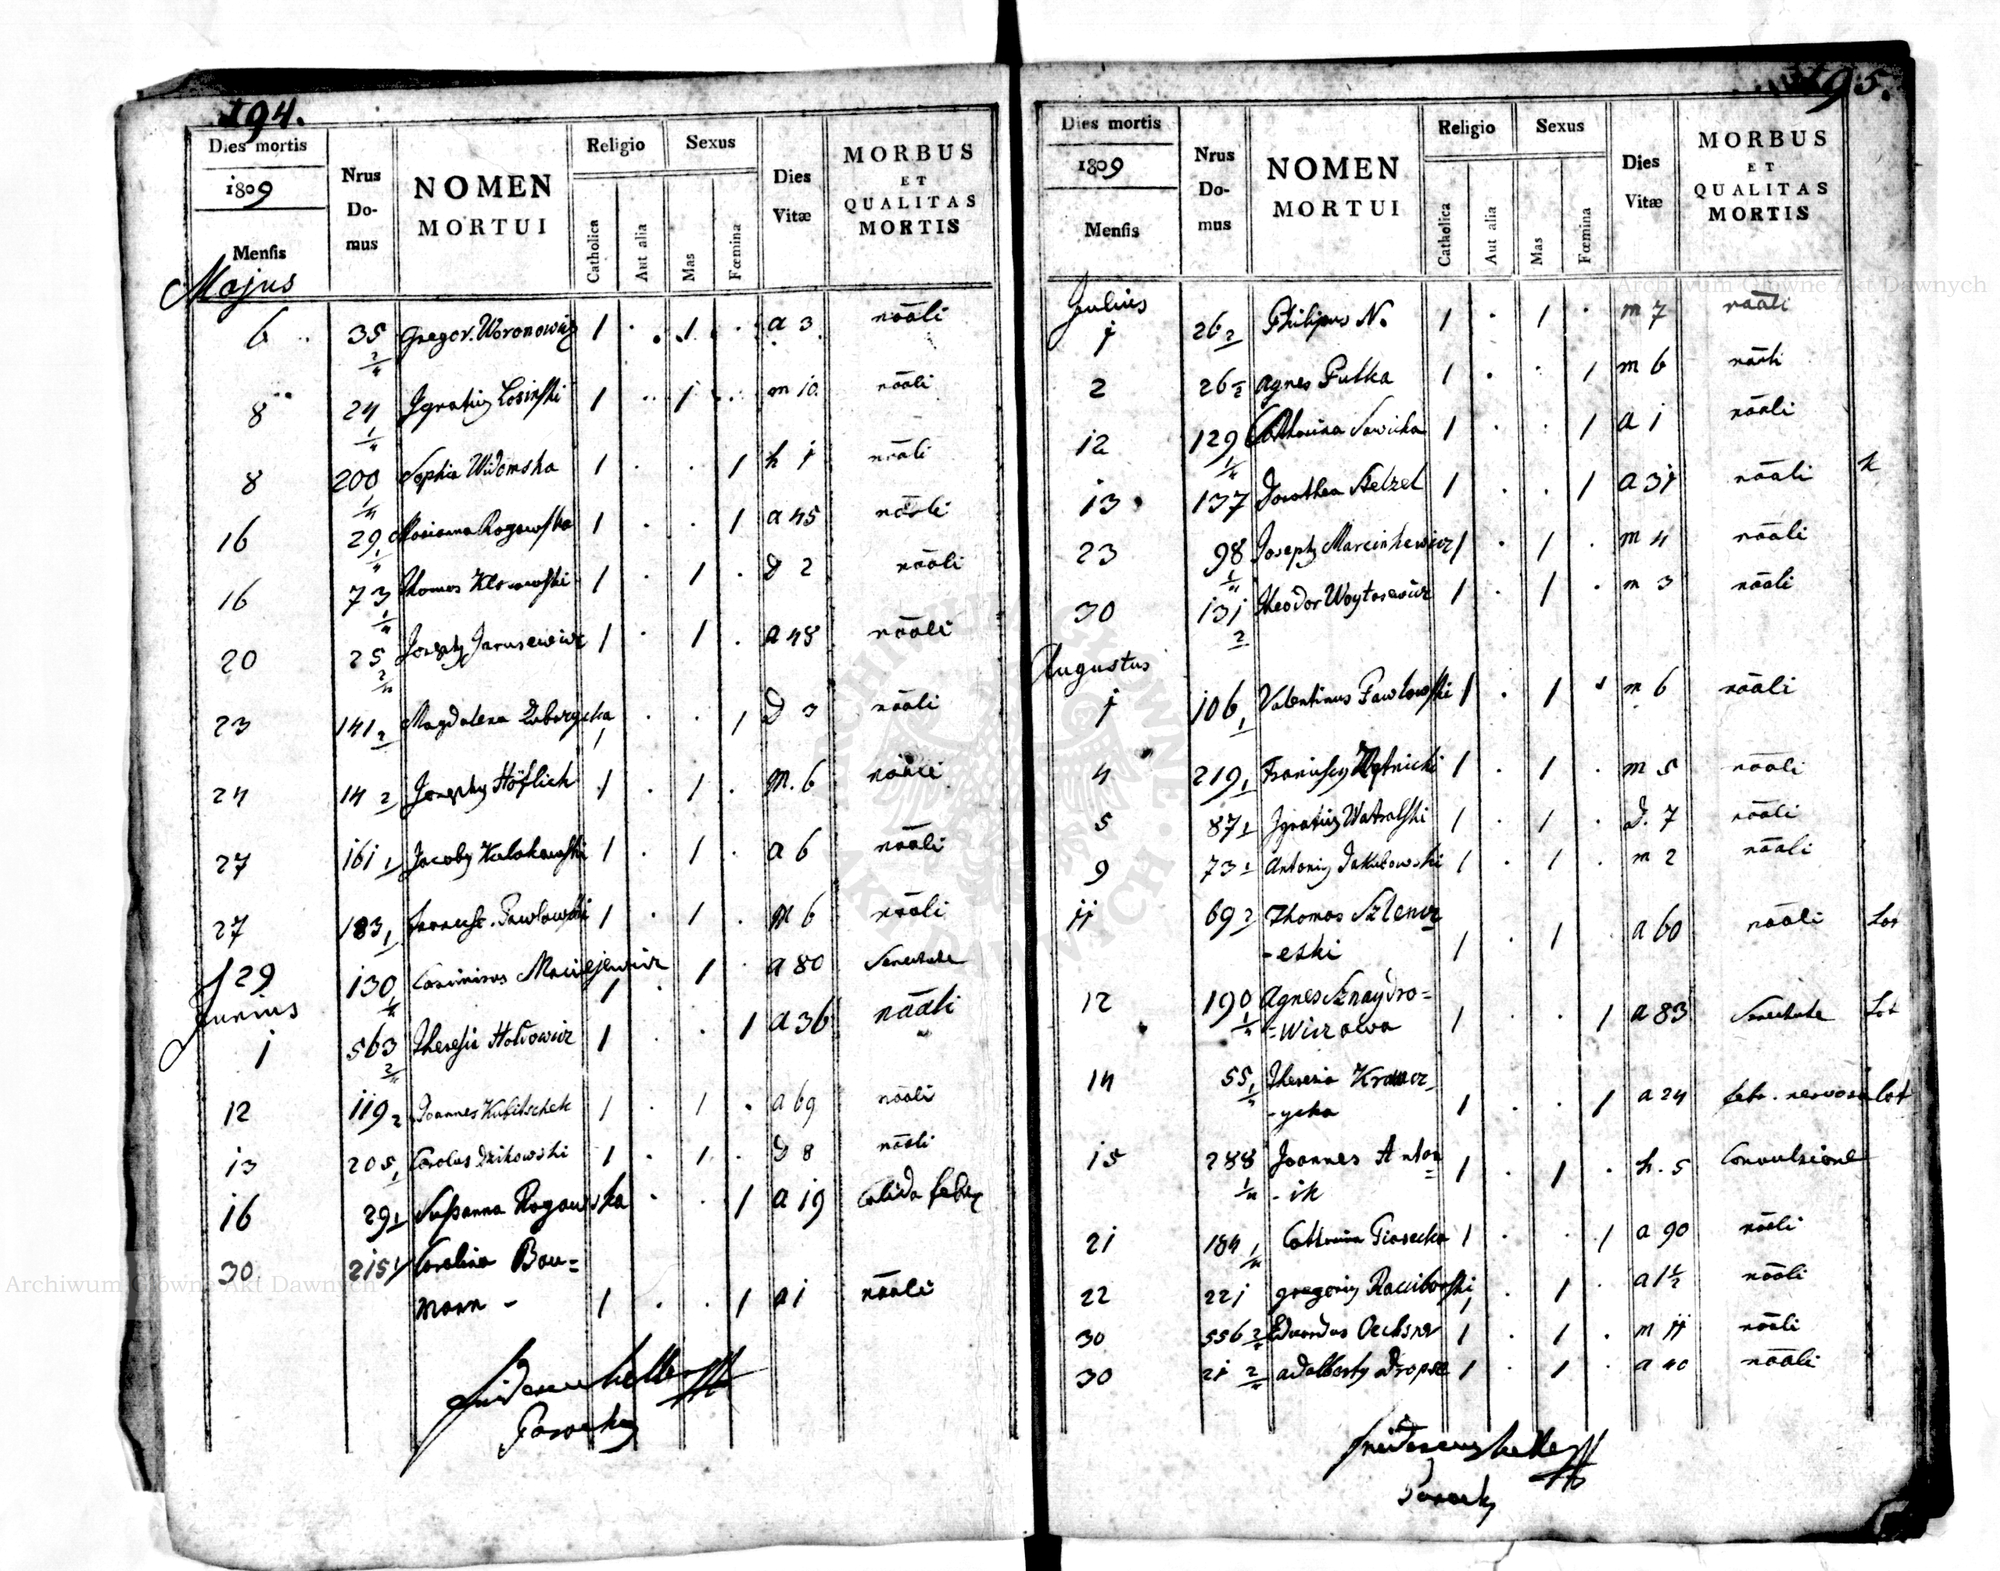 194.
Dies mortis
1809
Mensis
Nrus Do- mus
NOMEN MORTUI
Religio
Catholica
Aut alia
Sexus
Mas
Fœmina
Dies Vitæ
MORBUS ET QUALITAS MORTIS
Majus
6 35 2/4 Gregor. Woronowicz 1 . 1 . a 3 nāāli
8 24 1/4 Ignatius Losinski 1 . 1 . m 10 nāāli
8 200 1/4 Sophia Widomska 1 . . 1 h 1 nāāli
16 29 1/4 Marianna Rogowska 1 . . 1 a 45 nāāli
16 73 1/4 Thomas Klosowski 1 . 1 . D 2 nāāli
20 25 2/4 Joseph Jarusewicz 1 . 1 . a 48 nāāli
23 141 2 Magdalena 1 . . 1 D 3 nāāli
24 14 2 Josephus Höflich 1 . 1 . M. 6 nāāli
27 161 1 Jacobus Kulakowski 1 . 1 . a 6 nāāli
27 183 1 Francisc. Pawlowski 1 . 1 . M 6 nāāli
29 130 1/4 Casimirus Maciejewicz 1 . 1 . a 80 Senectute
Junius
1 563 2/4 Theresia Holdowicz 1 . . 1 a 36 nāāli
12 119 2 Joannes Kubitschek 1 . 1 . a 69 nāāli
13 205 1 Carolus Dzikowski 1 . 1 . D 8 nāāli
16 29 1 Sussanna Rogowska . . 1 a 19 Calida febry
30 215 1 Carolina Bau=
mann - 1 . . 1 a 1 nāāli
Fridericus Keller
Parochus
195.
Dies mortis
1809
Mensis
Nrus Do- mus
NOMEN MORTUI
Religio
Catholica
Aut alia
Sexus
Mas
Fœmina
Dies Vitæ
MORBUS ET QUALITAS MORTIS
Julius
1 26 2 Philipus N. 1 . 1 . m 7 nāāli
2 26 2 Agnes Putka 1 . . 1 m 6 nāāli
12 129 1/4 Catharina Sawicka 1 . . 1 a 1 nāāli
13 137 Dorothea Stelzel 1 . . 1 a 31 nāāli
23 98 1/4 Joseph Marcinkewicz 1 . 1 . m 4 nāāli
30 131 2 Theodor Woytasewicz 1 . 1 . m 3 nāāli
Augustus
1 106 1 Valentinus Pawlowski 1 . 1 m 6 nāāli
4 219 1 Franciscus 1 . 1 . m 5 nāāli
5 87 1 Ignatius Watralski 1 . 1 . d. 7 nāāli
9 73 1 Antonius Jakubowski 1 . 1 . m 2 nāāli
11 69 2 Thomas Szlencz
-eski 1 . 1 . a 60 nāāli
12 190 1/4 Agnes Sznaydro=
-wiczowa 1 . . 1 a 83 Senectute
14 55 1/4 Theresia Krawcz-
-ycka 1 . . 1 a 24 febr. nervosa
15 288 1/4 Joannes Anton=
-ik 1 . 1 . h. 5 Convulsione
21 184 1/4 Catharina Piasecka 1 . . 1 a 90 nāāli
22 221 Gregorius Raciborski 1 . 1 . a 1 1/2 nāāli
30 556 2 Eduardus Oechsner 1 . 1 . m 11 nāāli
30 21 2/4 Adalbertus Dropse 1 . 1 . a 40 nāāli
Fridericus Keller
Parochus
Archiwum Główne Akt Dawnych
Archiwum Główne Akt Dawnych